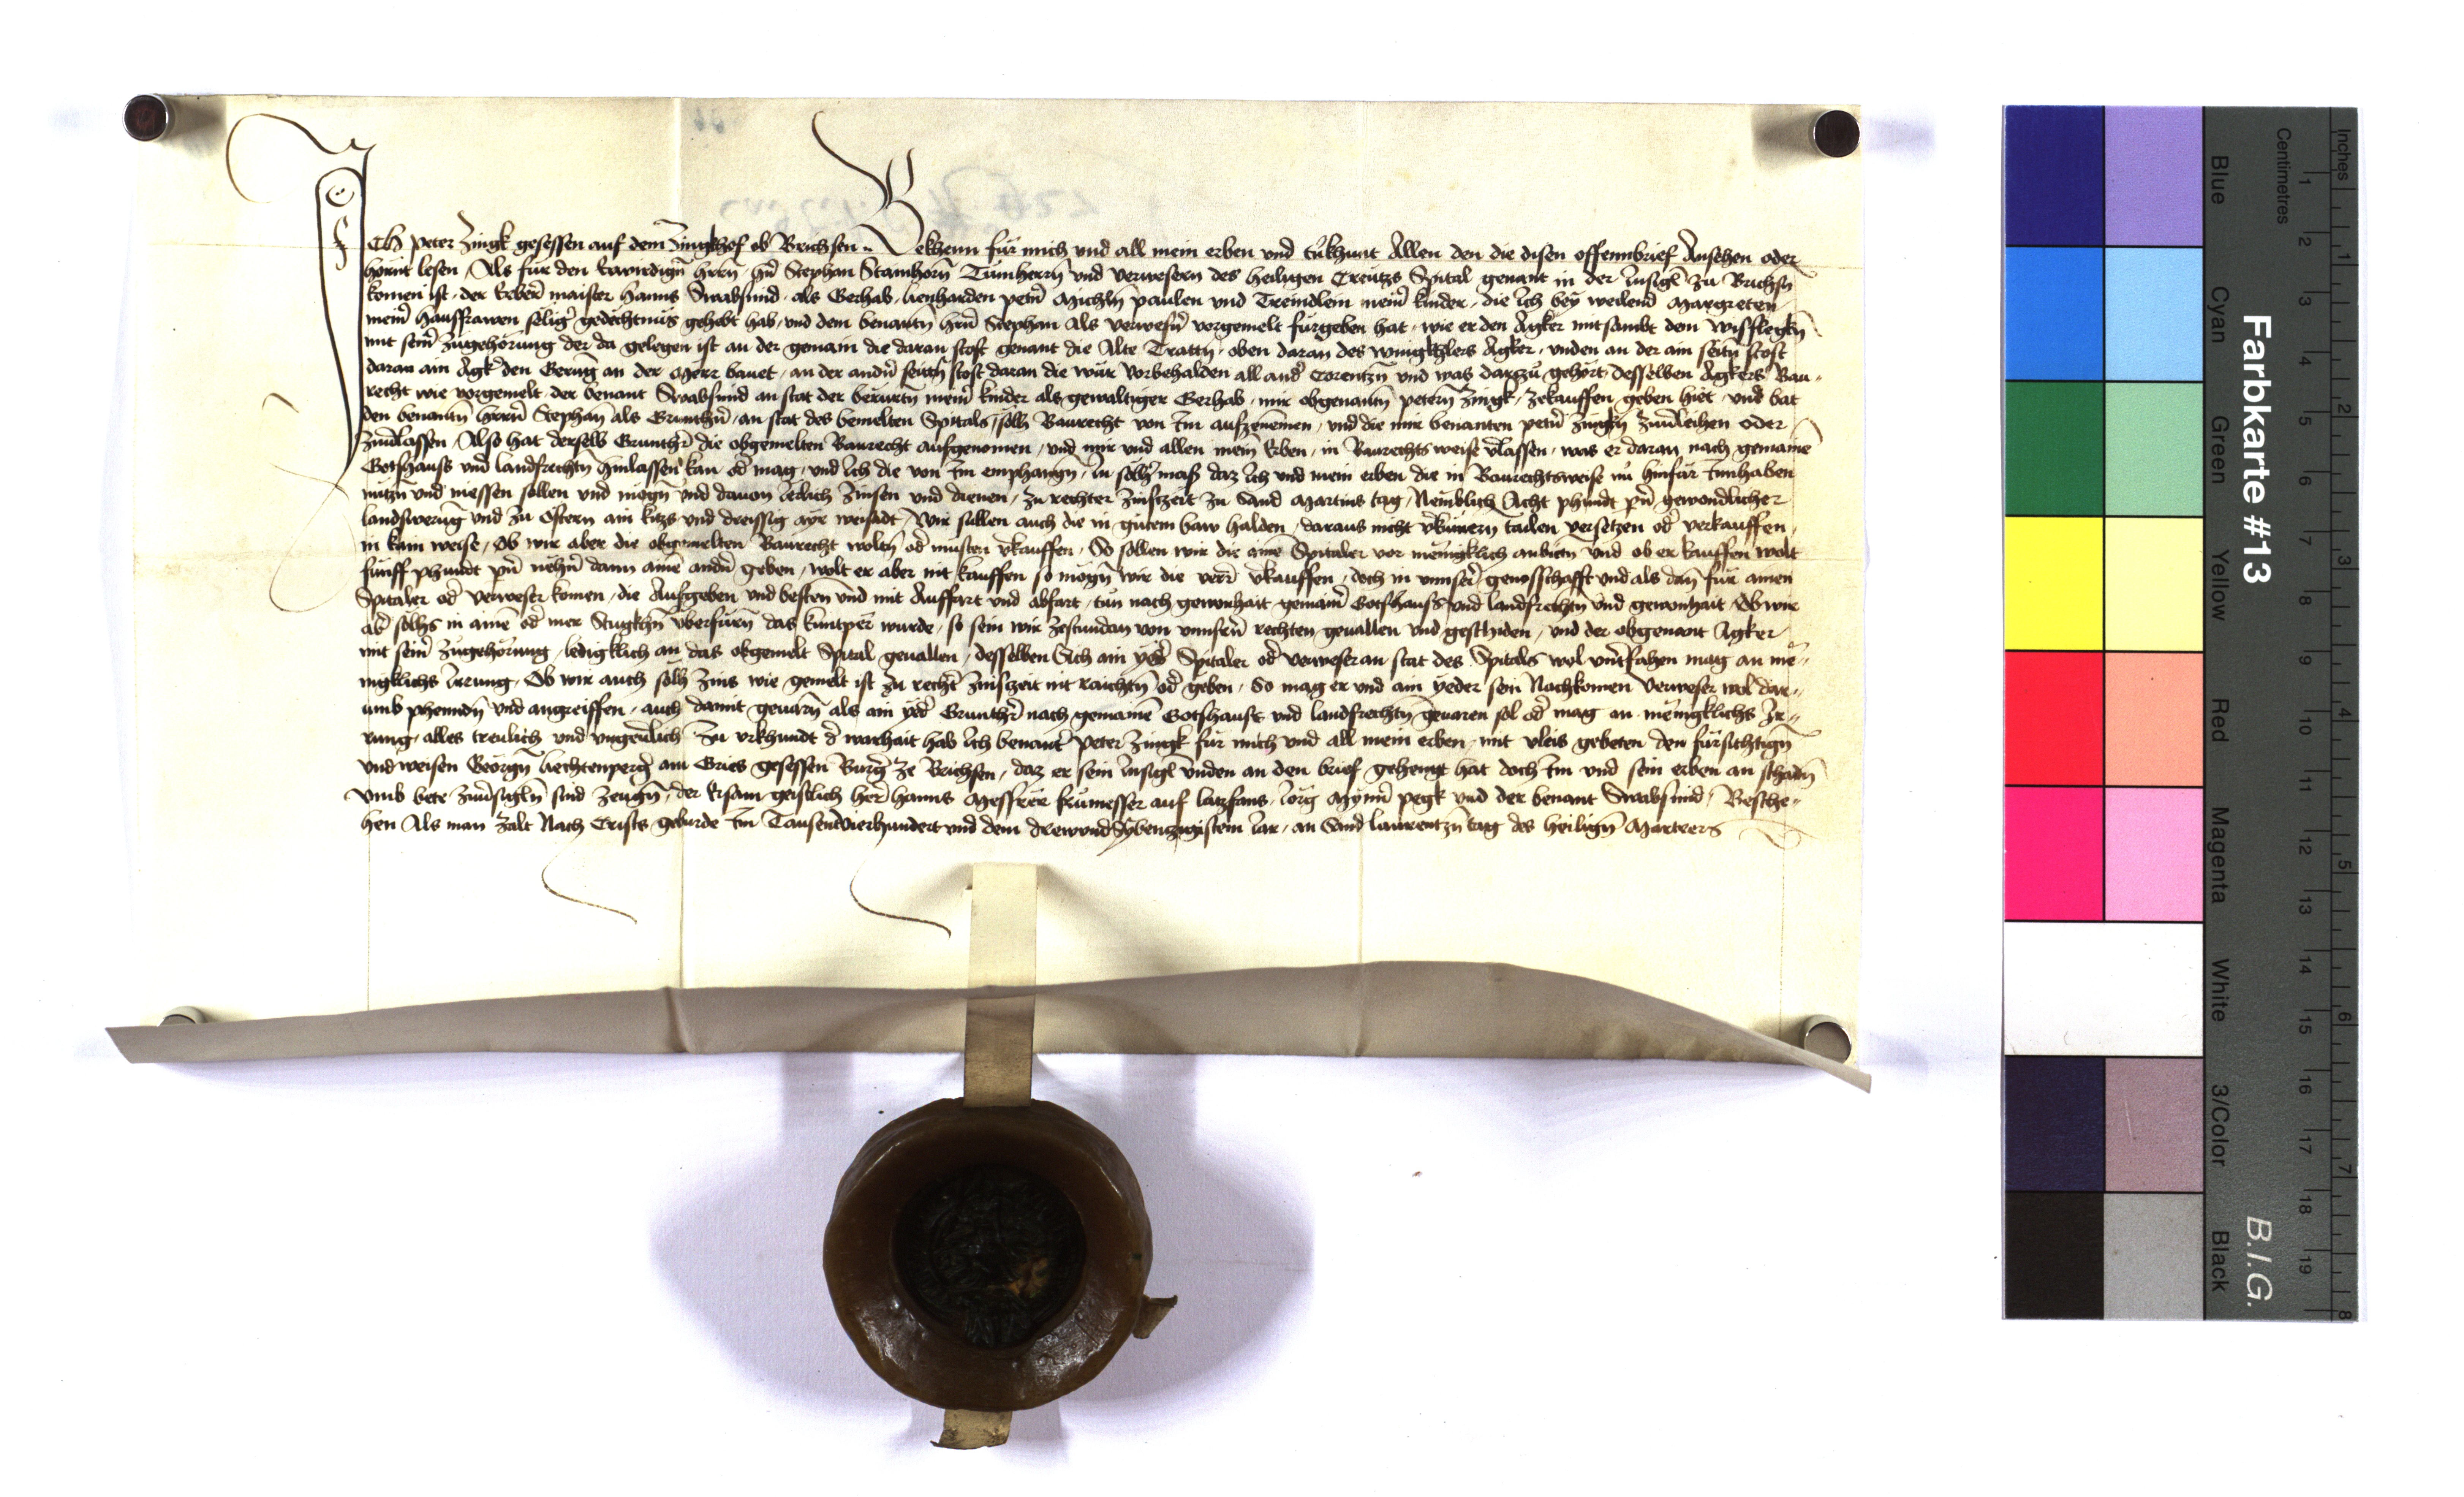 Ich Peter Zingk gesessen auf dem Zingkhof ob Brichsen Bekhenn für mich und all mein erben und tu khunt Allen den die disen offennbrief Ansehen oder
hörnt lesen Als für den Erwirdign̄ hern̄ hn̄ Stephan Stamhorn̄ Tumherrn̄ und verwesern des heiligen Creutzs Spital genant in der Insigl zu Brichsn̄
komen ist der Erber maister Hanns als Gerhab Lienharden petern̄ Michln̄ paulen und Treindlein mein̄ kinder die Ich bey weilend Margreten
mein̄ hausfrawen selig gedechtnüs gehebt hab und dem benantn̄ hrn̄ Stephan Als verwesn̄ vorgemelt fürgeben hat wie er den Agker mitsambt dem wisflegkn̄
mit sein̄ zugehörung der da gelegen ist an der gemain die daran stost genant die Alte Trattn̄ oben daran des Agker unden an der ain seitn̄ stost
daran ain Agk̄ den Gerung an der Merr bauet an der andn̄ seittn̄ stost daran die wür vorbehalden all and̄ und was darzu gehört desselben Agkers Bau
recht wie vorgemelt der benant an stat der berürtn̄ mein̄ kinder als gewaltiger Gerhab mir obgenantn̄ petern̄ Zingk zekauffen geben hiet und bat
den benantn̄ hern̄ Stephan als Gruntherr an stat des bemelten Spitals solh Baurecht von Im aufzenemen und die mir benanten petern̄ Zingkn̄ zuverleihen oder
zuverlassen Also hat derselb Gruntherr die obgemelten Baurecht aufgenomen und mir und allen mein̄ Erben in Baurechtsweise v̄lassen was er daran nach gemaine
Gotshauss und landsrechtn̄ hinlassen kan od̄ mag und Ich die von Im emphangn̄ In solher mass daz Ich und mein erben die in Baurechtsweise nu hinfür Innhaben
nützn̄ und niessen sollen und mögn̄ und davon Jerlich zinsen und dienen zu rechter zinszeit zu Sand Martins tag Nemblich Acht phundt pn̄ gewondlicher
landsweruḡ und zu Ostern ain kitzs und dreissig ayr weisadt Wir sullen auch die in gutem baw halden daraus nicht v̄kümern tailen versetzen od̄ verkauffen
in kain weise Ob wir aber die obgemelten Baurecht woltn̄ od̄ müsten v̄kauffen So sollen wir die aine Spitaler vor menigklich anbietn̄ und ob er kauffen wolt
fünff phundt pn̄ nehn̄ dann aine andn̄ geben wolt er aber nit kauffen so mögn̄ wir die verr v̄kauffen doch in unnser genosschafft und als dan für ainen
Spitaler od̄ verweser komen die Aufgeben und besten und mit Auffart und abfart tun nach gewonhait gemain̄ Gotshauss und landsrechtn̄ und gewonhait Ob wir
ab̄ solhs in aine od̄ mer Stugkhn̄ überfürn̄ das kuntper wurde so sein wir zestundan von unnsern̄ rechten gevallen und geschiden und der obgenant Agker
mit sein̄ zugehörung ledigklich an das obgemelt Spital gevallen desselben Sich ain yed̄ Spitaler od̄ verweser an stat des Spitals wol undtfahen mag an me
nigklichs Irrung Ob wir auch solh zins wie gemelt ist zu recht̄ zinszeit nit raichtn̄ od̄ geben So mag er und ain yeder sein Nachkomen verweser wol dar
umb phenndn̄ und angreiffen auch damit gevarn̄ als ain yed̄ Grunthr̄ nach gemaine Gotshauss und landsrechtn̄ gevaren sol od̄ mag an menigklichs Ir
rung alles treulich und ungeverlich Zu urkhundt d̄ warhait hab Ich benant̄ Peter Zingk für mich und all mein erben mit vleis gebeten den fürsichtign̄
und weisen Georgn̄ Liechtenperḡ am Gries gesessen Burḡ ze Brichsen daz er sein Insigl unden an den brief gehengt hat doch Im und sein erben an schadn̄
umb bete zuversigln̄ sind zeugn̄ der Ersam geistlich her Hanns frümesser auf Latzfans Jörg pegk und der benant Besche
hen Als man zalt Nach Crists geburde Im Tausentvierhundert und dem drewundSybenzigistem Jar an Sand Laurentzn̄ tag des heilign̄ Martrers
Farbkarte #13
B.I.G.
Inches 1 2 3 4 5 6 7 8
Centimetres 1 2 3 4 5 6 7 8 9 10 11 12 13 14 15 16 17 18 19
Blue
Cyan
Green
Yellow
Red
Magenta
White
3/Color
Black